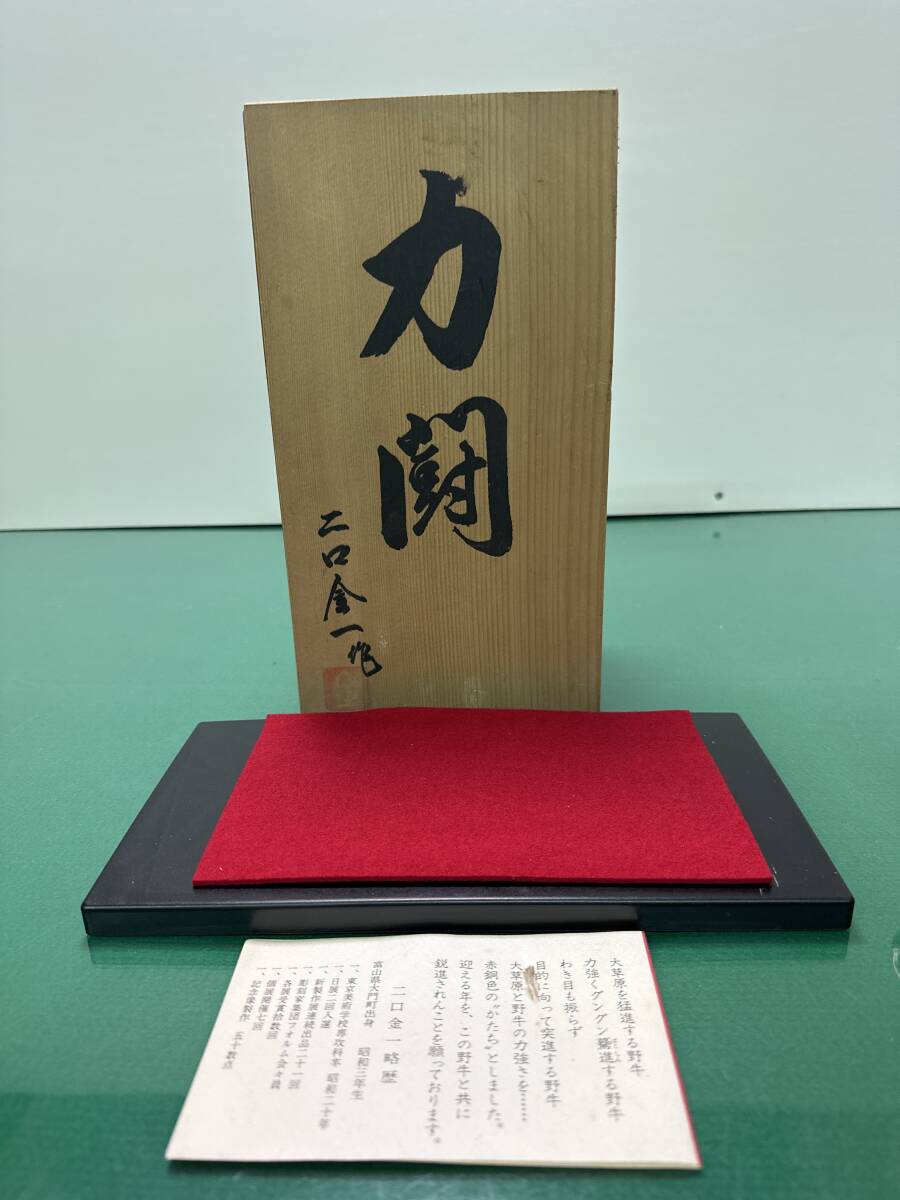 力闘
二口金一作
大草原を猛進する野牛
力強くグングン驀進する野牛
わき目も振らず
目的に向って突進する野牛
大草原と野牛の力強さを……
赤銅色の“かたち”としました。
迎える年を、この野牛と共に
鋭進されんことを願っております。
二口金一略歴
富山県大門町出身 昭和三年生
一、東京美術学校専攻科卒 昭和二十年
一、日展二回入選
一、新製作展連続出品二十一回
一、彫刻家集団フォルム会々員
一、各展受賞拾数回
一、個展開催七回
一、記念像製作 五十数点